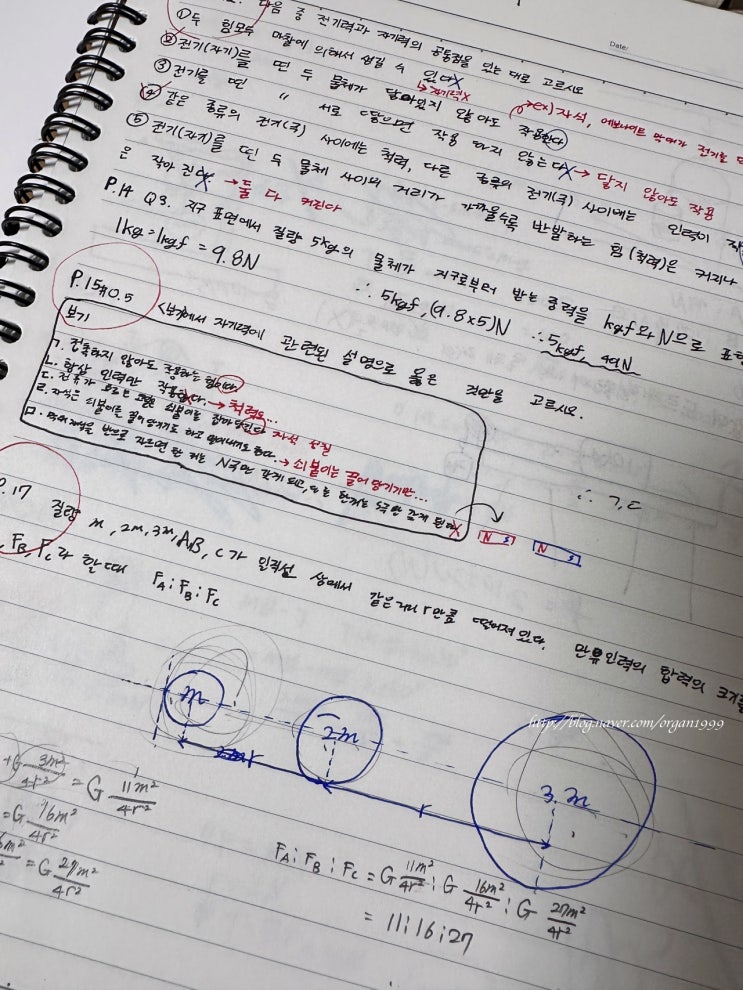 다음 중 전기력과 자기력의 공통점을 있는 대로 고르시오
Date:
① 두 힘모두 마찰에 의해서 생길 수 있다X
→자기력X
② 전기(자기)를 띤 두 물체가 닿아있지 않아도 작용한다
ex) 자석, 에보나이트 막대가 전기를
③ 전기를 띤 〃 서로 닿으면 작용 하지 않는다X → 닿지 않아도 작용
④ 같은 종류의 전기(극) 사이에는 척력, 다른 종류의 전기(극) 사이에는 인력이
⑤ 전기(자기)를 띤 두 물체 사이의 거리가 가까울수록 반발하는 힘(척력)은 커지나
은 작아 진다X → 둘 다 커진다
P.14 Q3. 지구 표면에서 질량 5kg의 물체가 지구로부터 받는 중력을 kgf와 N으로 표
1kg=1kgf = 9.8N
∴ 5kgf, (9.8×5)N ∴5kgf, 49N
P.15 #0.5 <보기>에서 자기력에 관련된 설명으로 옳은 것만을 고르시오.
보기
ㄱ. 접촉하지 않아도 작용하는 힘이다.
ㄴ. 항상 인력만 작용한다. → 척력도...
ㄷ. 전류가 흐르는 쇠붙이를 잡아당긴다 자석 성질
ㄹ. 자석은 쇠붙이를 끌어 당기기도 하고 밀어내기도 한다. → 쇠붙이는 끌어 당기기만...
ㅁ. 막대자석을 반으로 자르면 한 개는 N극만 갖게 되고, 또 는 한개는 S극만 갖게 된다X
N S N S
∴ ㄱ,ㄷ
P.17 질량 m, 2m, 3m, A, B, C가 일직선 상에서 같은거리 r만큼 떨어져있다. 만유인력의 합력의 크기를
F_B, F_C라 할때 F_A : F_B : F_C
m
2m
3m
r
http://blog.naver.com/organ1999
+G 3m²/4r² = G 11m²/4r²
=G 16m²/4r²
= G 27m²/4r²
F_A : F_B : F_C = G 11m²/4r² : G 16m²/4r² : G 27m²/4r²
= 11:16:27